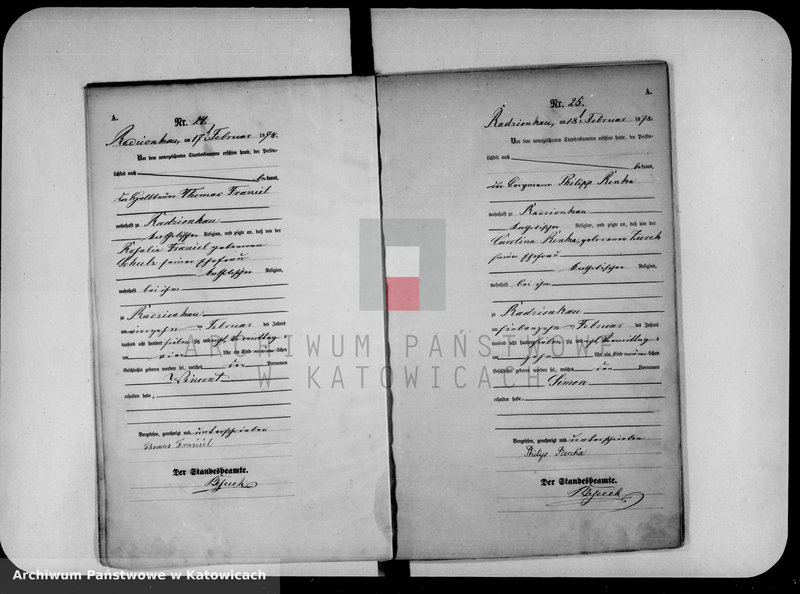 A.
Nr. 24.
Radzionkau, am 17t Februar 1878.
Vor dem unterzeichneten Standesbeamten erschien heute, der Persön-
lichkeit nach bekannt,
der Thomas Franiel
wohnhaft zu Radzionkau
katholischer Religion, und zeigte an, daß von der
Rosalia Franiel geborenen
Schulz seiner Ehefrau
katholischer Religion,
wohnhaft bei ihm
zu Radzionkau
am vierzehn Februar des Jahres
tausend acht hundert siebenzig und acht Vormittag
um vier Uhr ein Kind männ lichen
Geschlechts geboren worden sei, welches den Vornamen
Vincent
erhalten habe.
Vorgelesen, genehmigt und unterschrieben
Thomas Franiel
Der Standesbeamte.
A.
Nr. 25.
Radzionkau, am 18t Februar 1878.
Vor dem unterzeichneten Standesbeamten erschien heute, der Persön-
lichkeit nach bekannt,
der Bergmann Philipp Renka
wohnhaft zu Radzionkau
katholischer Religion, und zeigte an, daß von der
Carolina Renka, geborenen Zurek
seiner Ehefrau
katholischer Religion,
wohnhaft bei ihm
zu Radzionkau
am siebenzehn Februar des Jahres
tausend acht hundert siebenzig und acht Vormittag
um zehn Uhr ein Kind männ lichen
Geschlechts geboren worden sei, welches den Vornamen
Simon
erhalten habe.
Vorgelesen, genehmigt und unterschrieben
Philip Renka
Der Standesbeamte.
ARCHIWUM PAŃSTWOWE
W KATOWICACH
Archiwum Państwowe w Katowicach